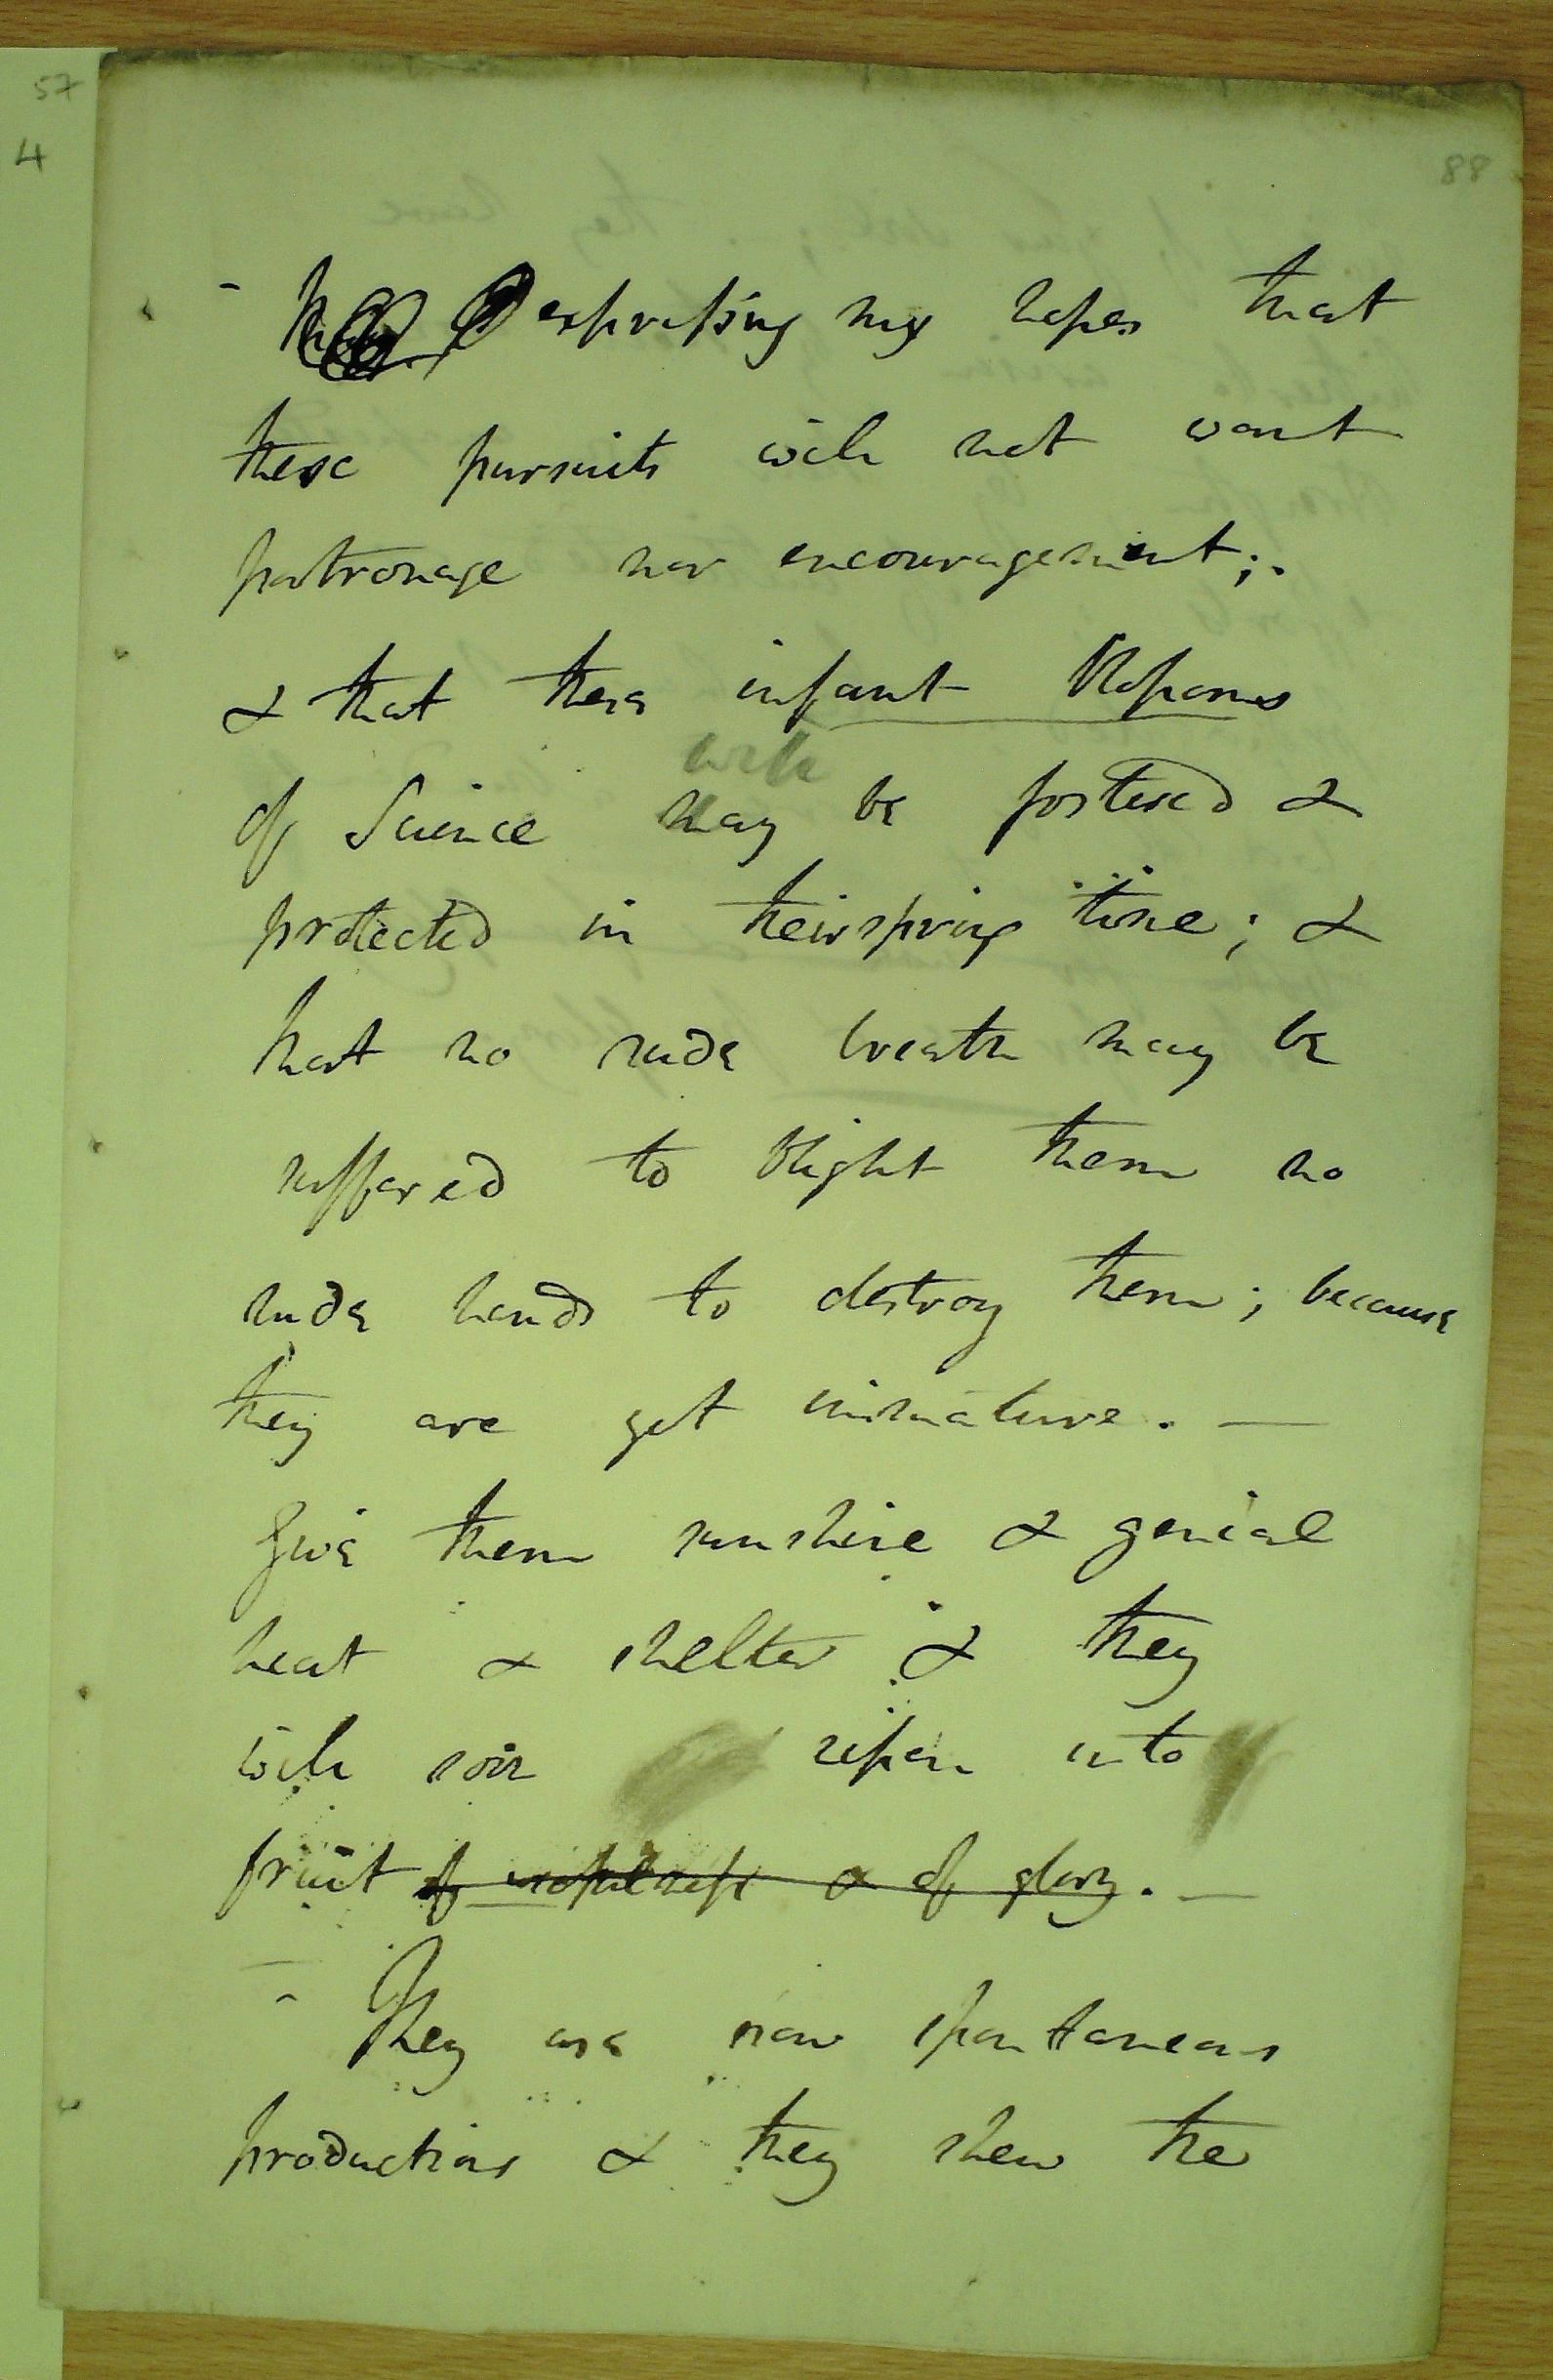 57
4
88
- expressing my hopes that
these pursuits will not want
patronage nor encouragement;.
& that these infant blossoms
will
of Science may be fostered &
protected in their spring time; &
that no rude breath may be
suffered to blight them no
rude hands to destroy them; because
they are yet immature. —
Give them sunshine & genial
heat & shelter & they
will soon ripen into
fruit of usefulness & of glory. —
- They are now spontaneous
productions & they shew the